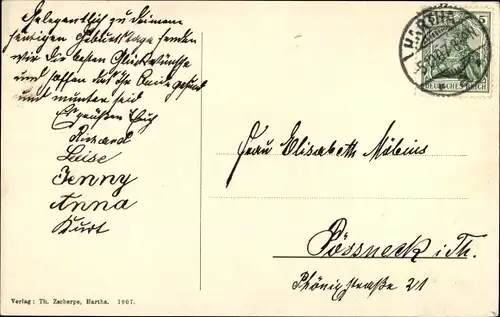 Gelegentlich zu Deinem
heutigen Geburtstage senden
wir die besten Glückwünsche
und hoffen daß Ihr gesund
und munter seid
Es grüßen Euch
Richard
Luise
Jenny
Anna
Kurt
Verlag: Th. Zscherpe, Hartha. 1907.
HARTHA
5
DEUTSCHES REICH
Frau Elisabeth Möbius
Pössneck i. Th.
Phönixstraße 21